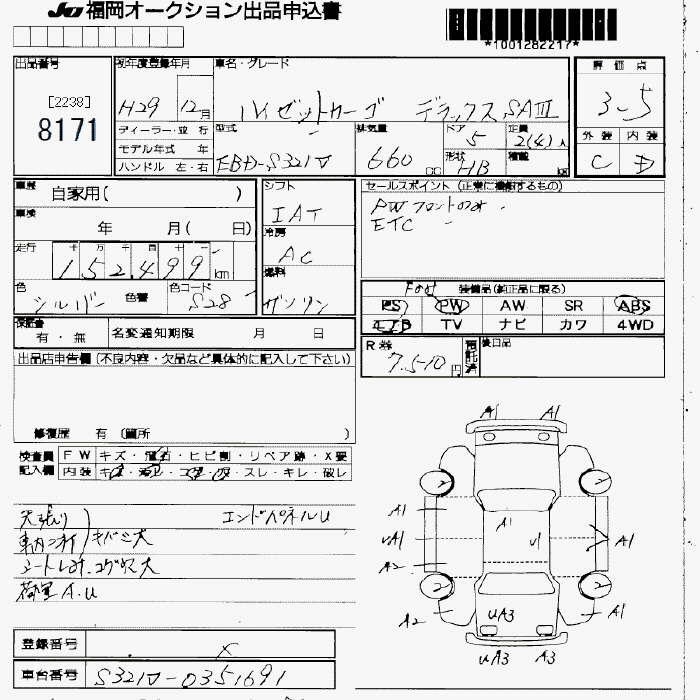 JU 福岡オークション出品申込書
*1001282217*
出品番号 初年度登録年月 車名・グレード 評価点
[2238]
8171
H29 12月 ハイゼットカーゴ デラックスSAⅢ 3.5
ディーラー・並行 型式 排気量 ドア 定員 外装 内装
モデル年式 年 EBD-S321V 660 CC 5 2(4)人 C D
ハンドル 左・右 形状 HB 積載 kg
車歴 自家用( ) シフト セールスポイント (正常に機能するもの)
IAT PWフロントのみ
車検 年 月( 日) 冷房 ETC
走行 AC
152,499km 燃料
色 シルバー 色替 色コード S28 ガソリン
装備品(純正品に限る)
PS PW AW SR ABS
エアB TV ナビ カワ 4WD
保証書 有・無 名変通知期限 月 日
R券 7,510円 預託済 後日品
出品店申告欄(不良内容・欠品など具体的に記入して下さい)
修復歴 有 (箇所 )
検査員 FW キズ・飛石・ヒビ割・リペア跡・X要
記入欄 内装 キズ・汚れ・コゲ・穴・スレ・キレ・破レ
天張り エンドパネルU
車内ニオイ キバミ大
シートよごれ・コゲ穴大
荷室A.U
A1 A1
A1 A1
UA1 U1 A1
A2
A2 UA3 A1
UA3 A3
登録番号 X
車台番号 S321V-0351691